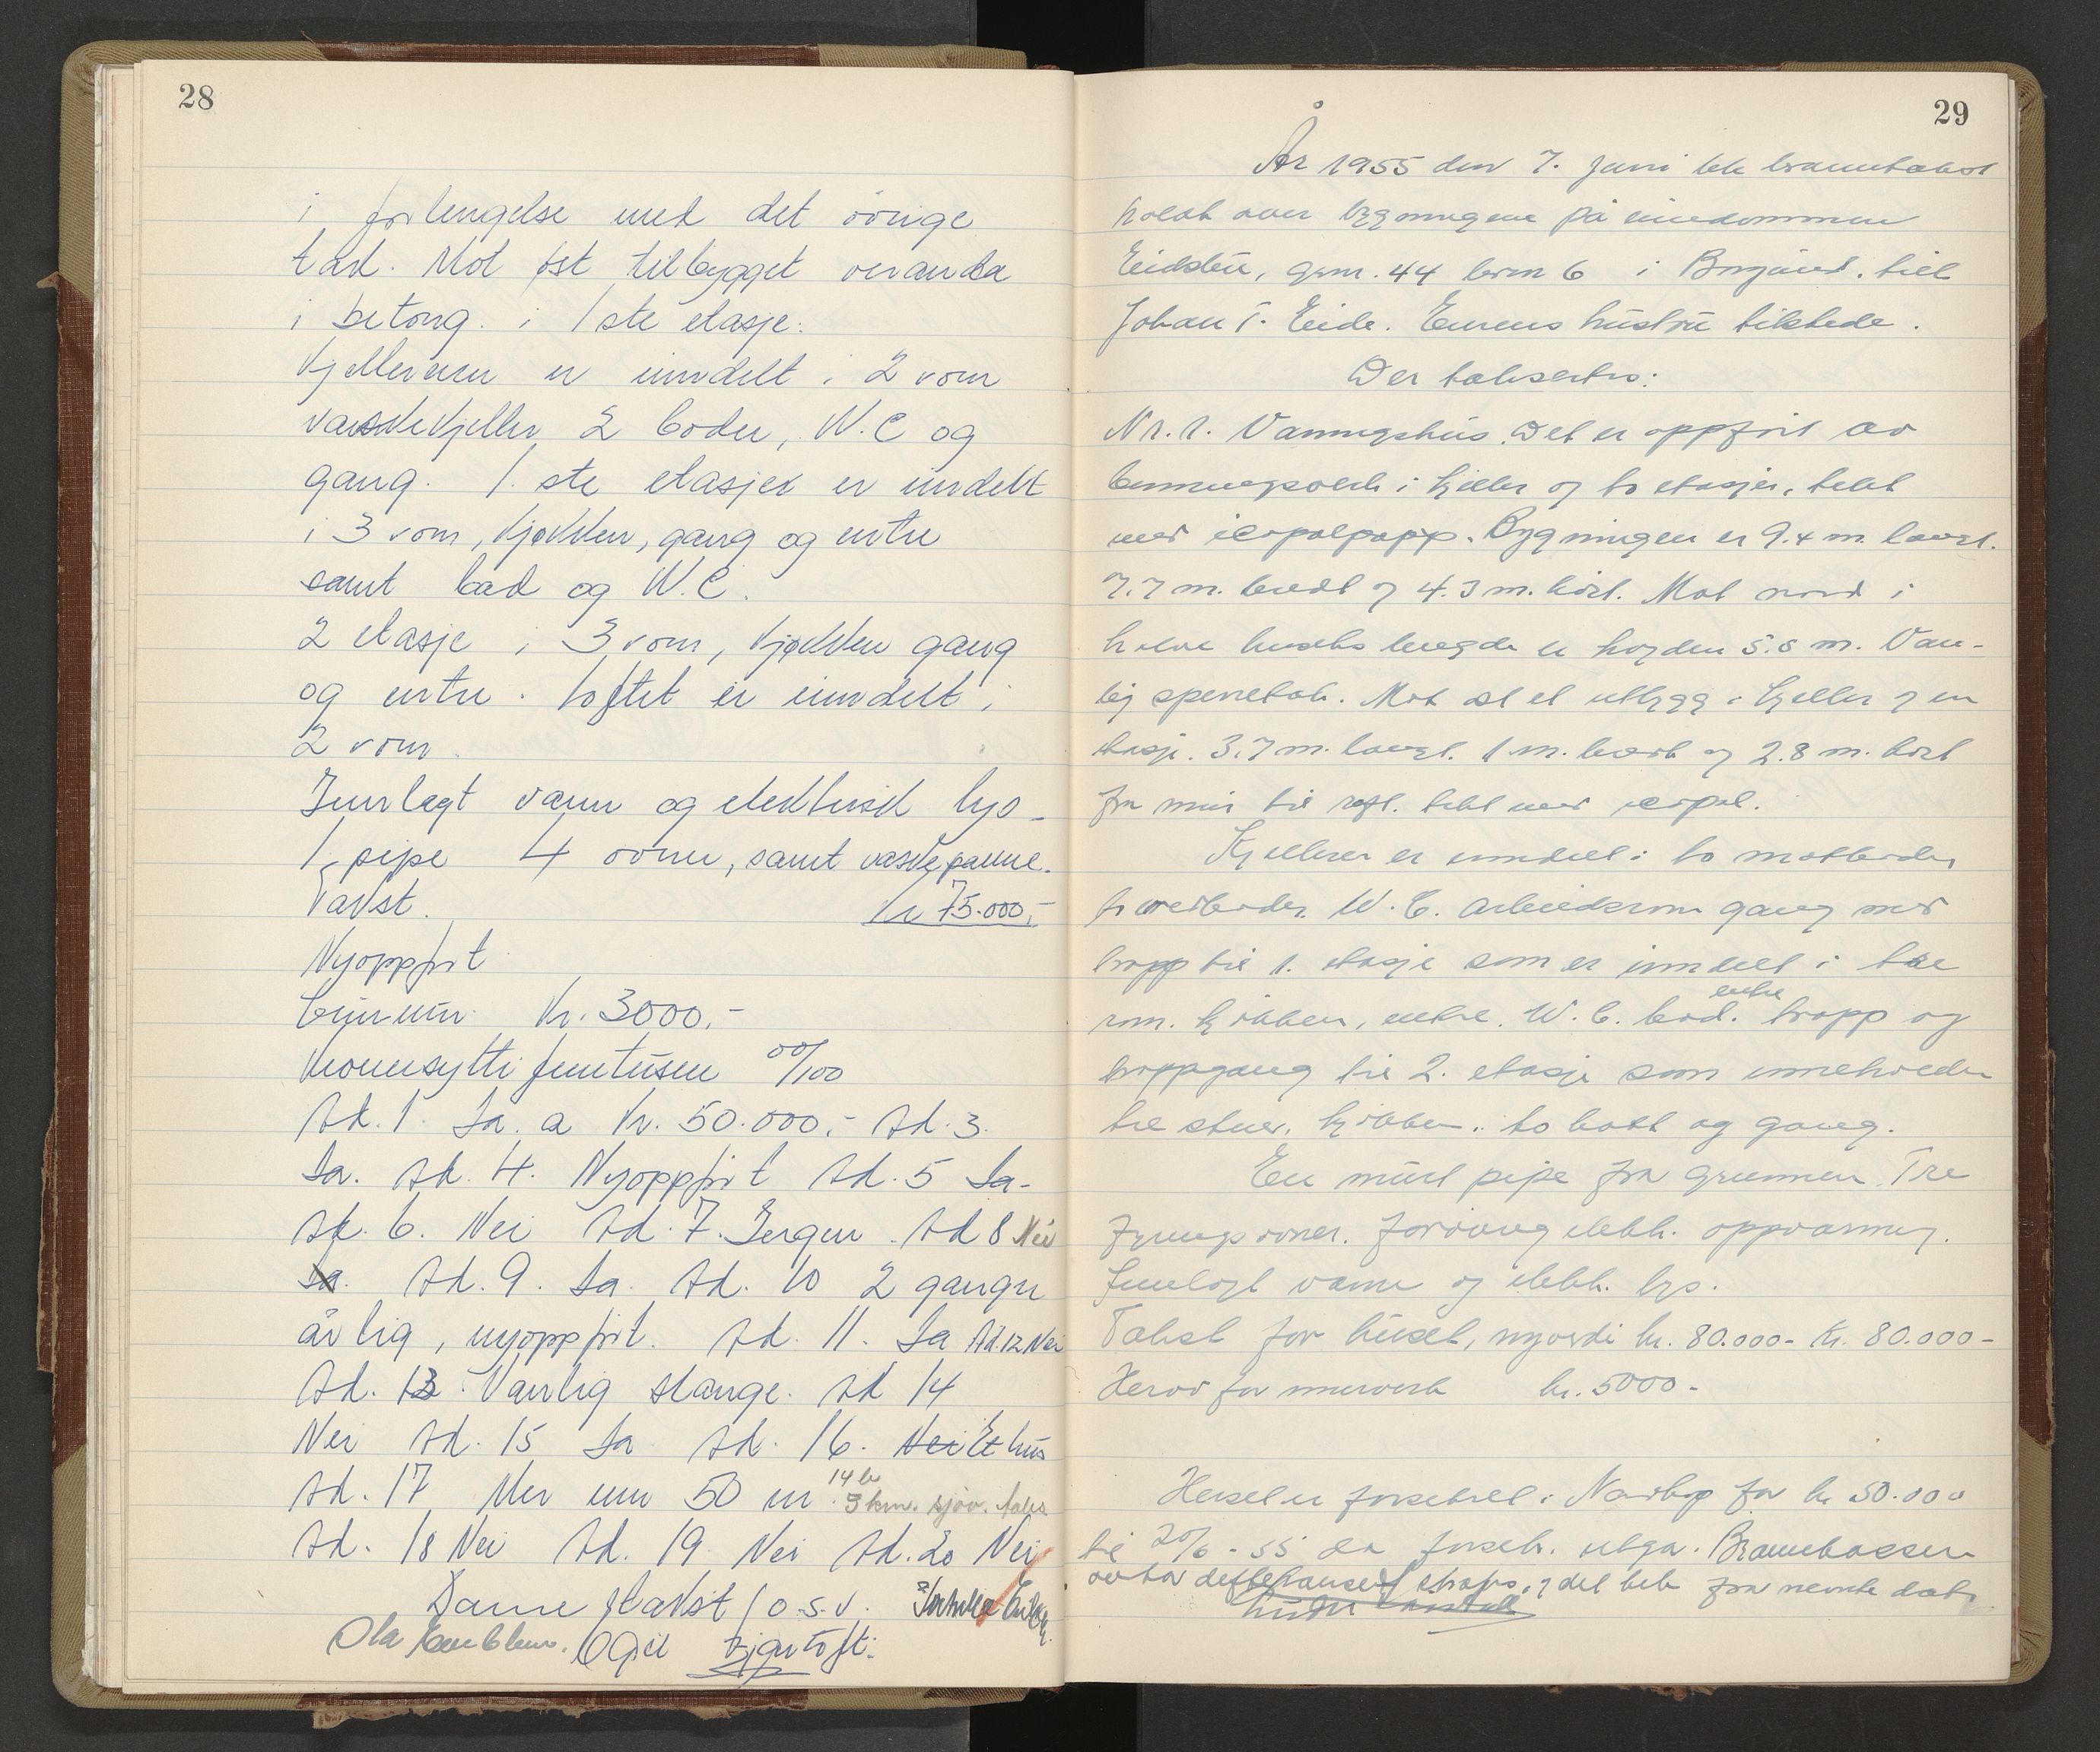 28
i forlengelse med det övrige
tak. Mot öst tilbygget veranda
i betong i 1ste etasje.
Kjelleren er inndelt i 2 rom
vaskekjeller 2 boder, W.C og
gang. 1. ste etasjer er inndelt
i 3 rom, kjøkken, gang og entre
samt bad og W.C.
2 etasje i 3 rom, kjøkken gang
og entre. Loftet er inndelt i
2 rom.
Innlagt vann og elektrisk lys-
1 pipe 4 ovner, samt vaskepanne.
Takst. Kr 75.000,-
Nyoppfört
Grunnmur Kr. 3000.-
Kroner sytti femtusen 00/100
Ad. 1. Ja. a Kr. 50.000,- Ad. 3.
Ja. Ad. 4. Nyoppfört Ad. 5 Ja-
Ad. 6. Nei Ad. 7. Ingen. Ad 8 Nei
Ja. Ad. 9. Ja. Ad. 10 2 ganger
årlig, nyoppfört. Ad. 11. Ja Ad. 12 Nei
Ad. 13. Vanlig stange. Ad 14
Nei Ad. 15 Ja Ad. 16. Nei Et hus
Ad. 17 Mer enn 50 m 14 b 3 km. sjöv.
Ad. 18 Nei Ad. 19 Nei Ad. 20 Nei
Denne takst / o.s.v.
Ola Emblem. Egil Gjertoft.
29
År 1955 den 7. juni ble branntakst
holdt over bygningene på eiendommen
Eidstun, gnr. 44 brn 6 i Borgund, tilh
Johan T. Eide. Eierens hustru tilstede.
Der taksertes:
Nr. 1. Vaaningshus. Det er oppfört av
i kjeller og to etasjer, tekt
med icopalpapp. Bygningen er 9.4 m. langt.
7.7 m. bredt og 4.3 m. höit. Mot nord i
halve husets lengde er hoyden 5.8 m. Van-
lig sperretak. Mot öst et utbygg i kjeller og en
etasje. 3.7 m. langt. 1 m. bredt og 2.8 m. höit
fra mur til raft. tekt med icopal.
Kjelleren er inndelt i to matboder
to vedboder. W.C. arbeidsrom gang med
trapp til 1. etasje som er inndelt i tre
rom. kjökken, entre. W.C. bad. entre trapp og
trappgang til 2. etasje som inneholder
tre stuer, kjökken. to kott og gang.
En murt pipe fra grunnen. Tre
fyringsovner. forövrig elekt. oppvarming.
Innlagt vann og elekt. lys.
Takst for huset, nyverdi kr. 80.000- Kr. 80.000-
Herav for murverk kr. 5000-
Huset er forsikret i for kr 50.000
til 20/6-55 da forsikr. utgår. Brannkassen
overtar straks, og det hele fra nevnte dato